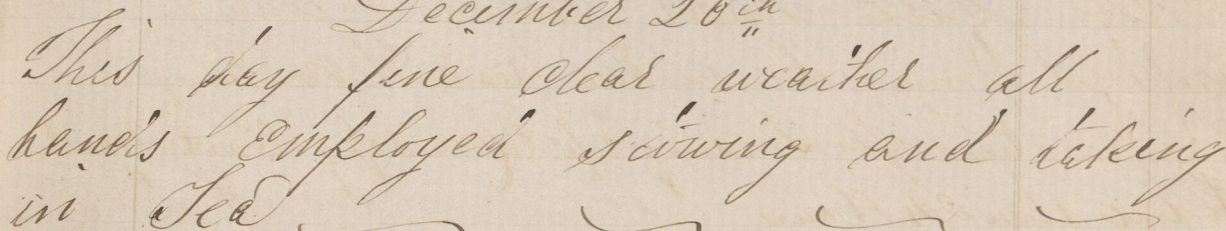 December 26th
This day fine clear weather all
hands Employed stowing and taking
in Tea